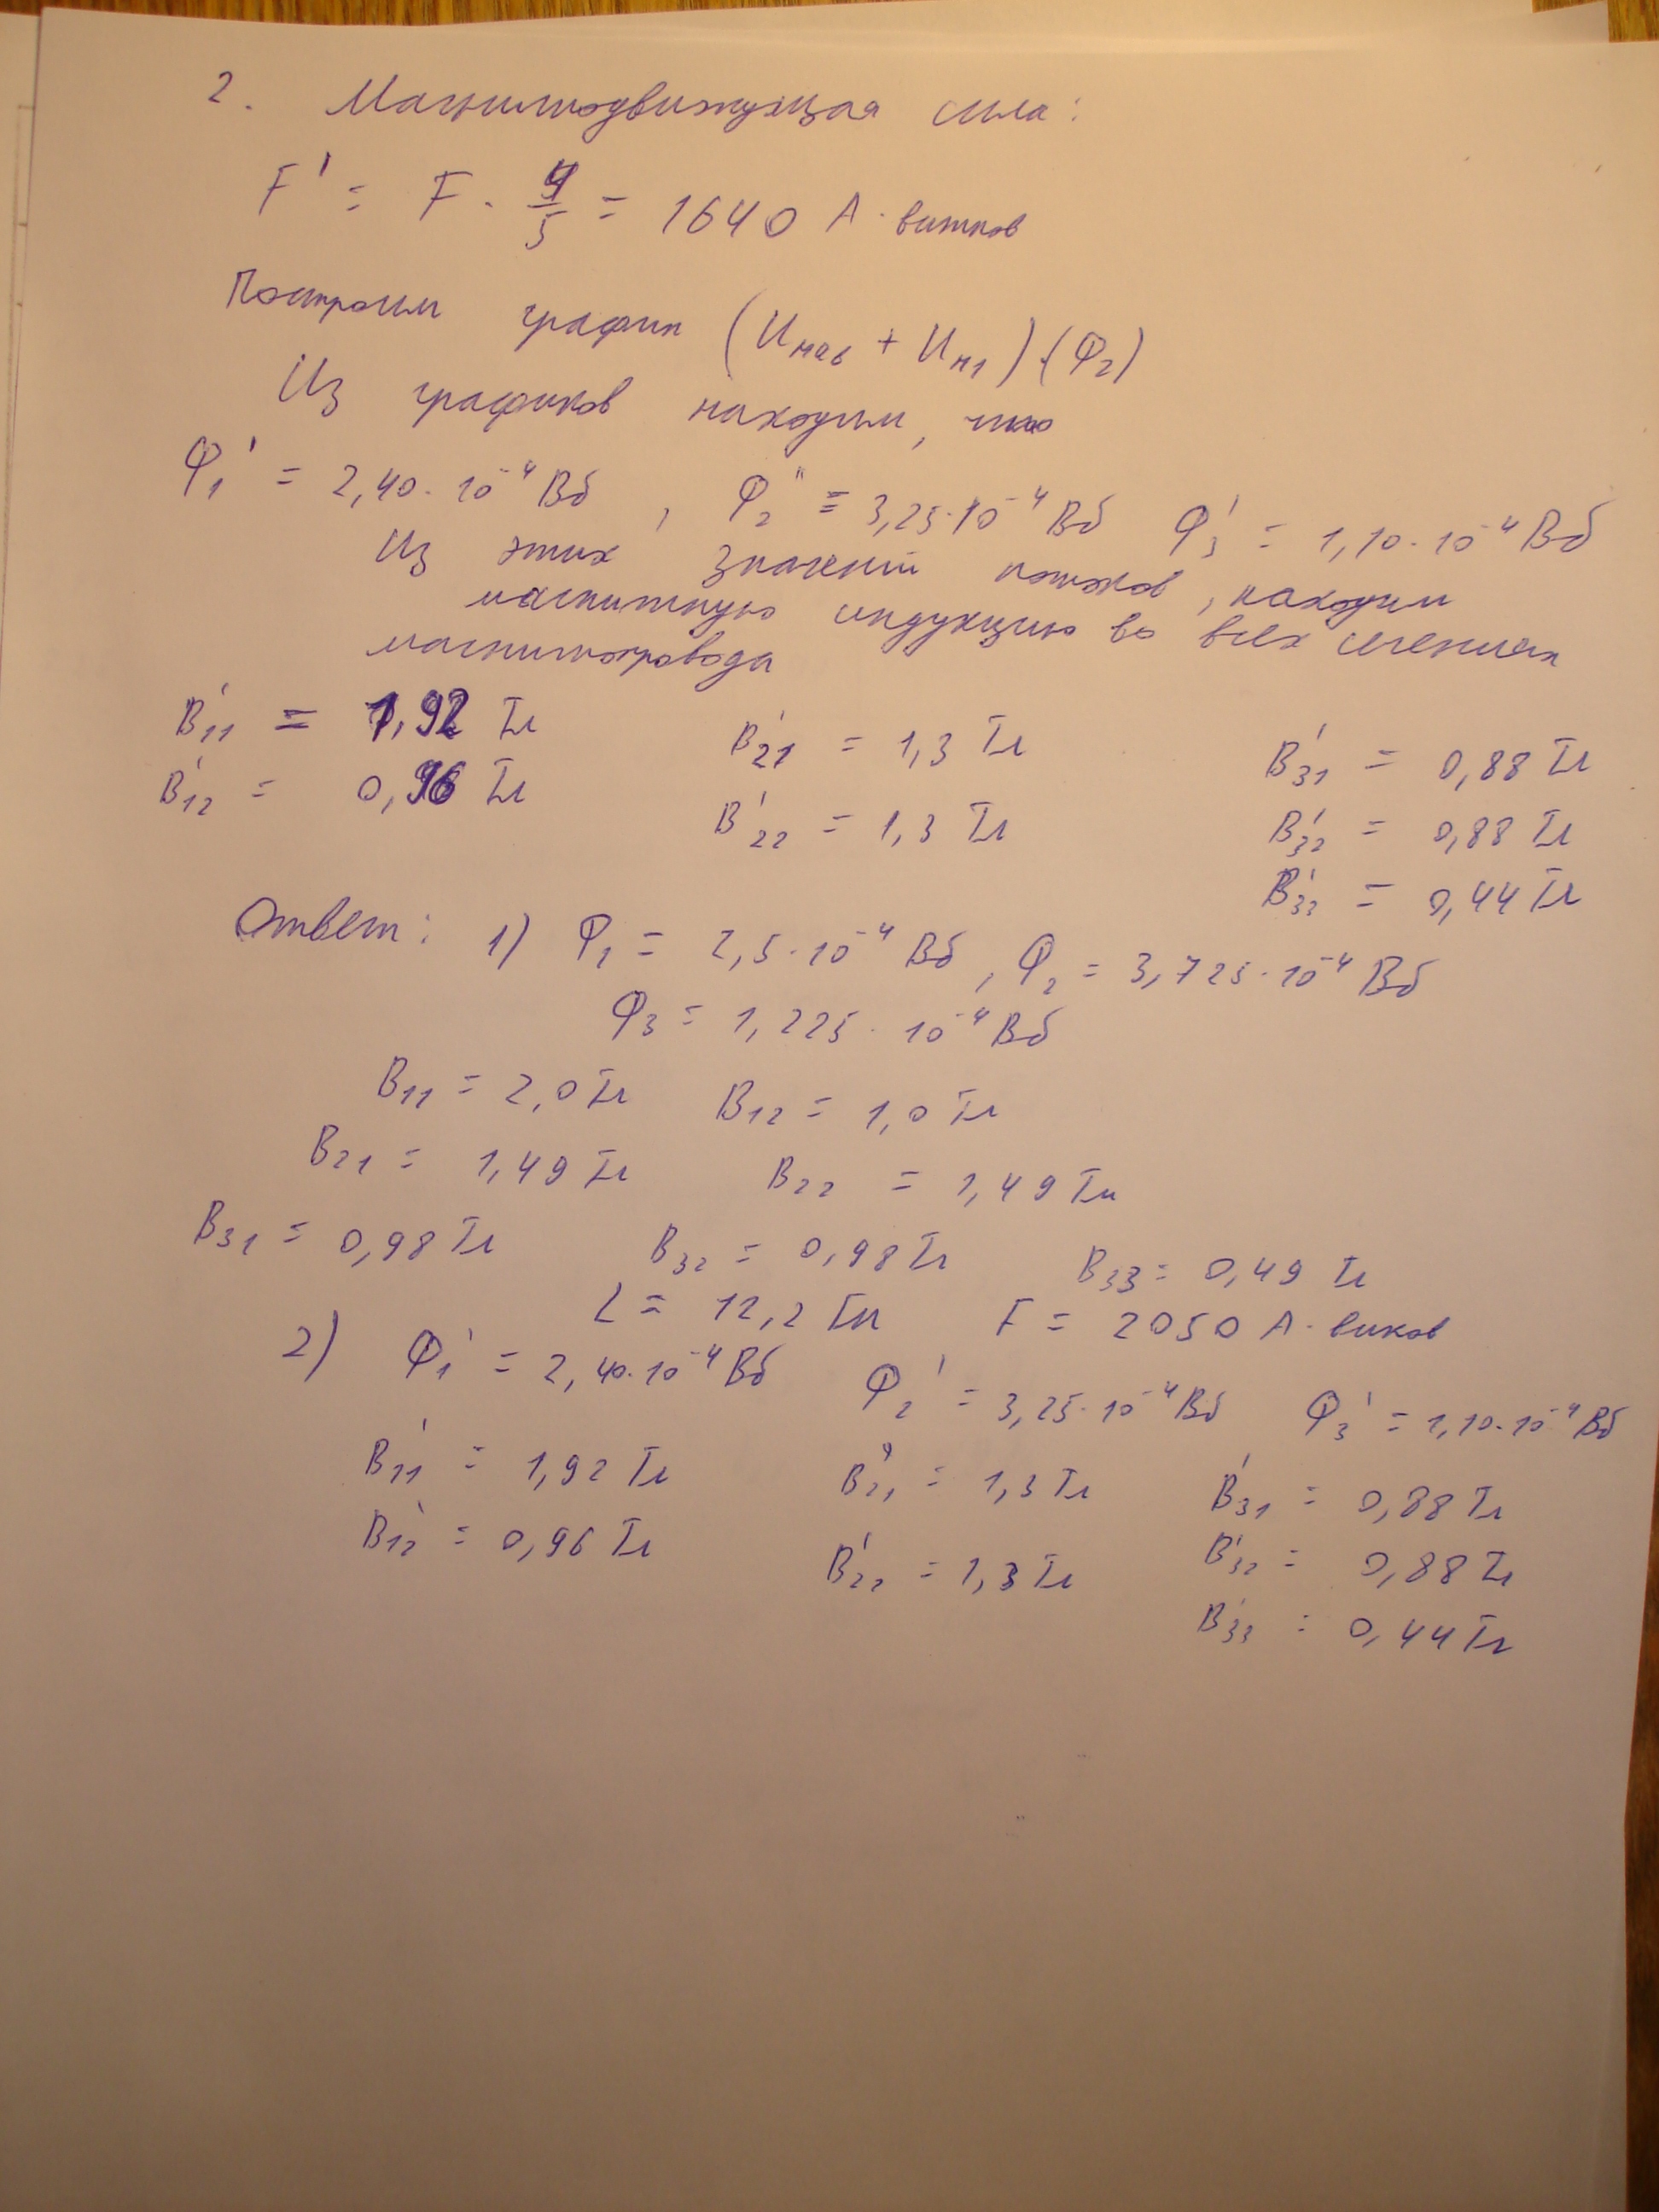 2. Магнитодвижущая сила:
F' = F · 4/5 = 1640 А·витков
Построим график (Uмab + Uм1)(Ф2)
Из графиков находим, что
Ф1' = 2,40·10⁻⁴ Вб, Ф2'' = 3,25·10⁻⁴ Вб Ф3' = 1,10·10⁻⁴ Вб
Из этих значений потоков, находим
магнитную индукцию во всех сечениях
магнитопровода
B'11 = 1,92 Тл B'21 = 1,3 Тл B'31 = 0,88 Тл
B'12 = 0,96 Тл B'22 = 1,3 Тл B'32 = 0,88 Тл
B'33 = 0,44 Тл
Ответ: 1) Ф1 = 2,5·10⁻⁴ Вб, Ф2 = 3,725·10⁻⁴ Вб
Ф3 = 1,225·10⁻⁴ Вб
B11 = 2,0 Тл B12 = 1,0 Тл
B21 = 1,49 Тл B22 = 1,49 Тл
B31 = 0,98 Тл B32 = 0,98 Тл B33 = 0,49 Тл
L = 12,2 Гн F = 2050 А·виков
2) Ф1' = 2,40·10⁻⁴ Вб Ф2' = 3,25·10⁻⁴ Вб Ф3' = 1,10·10⁻⁴ Вб
B'11 = 1,92 Тл B'21 = 1,3 Тл B'31 = 0,88 Тл
B'12 = 0,96 Тл B'22 = 1,3 Тл B'32 = 0,88 Тл
B'33 = 0,44 Тл